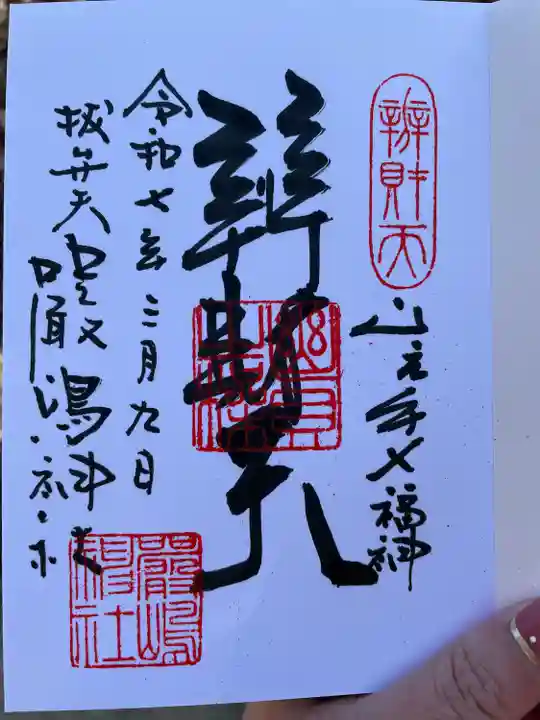 辨財天
山之手七福神
辨財天
令和七年三月九日
抜弁天 嚴嶋神社
嚴嶋神社